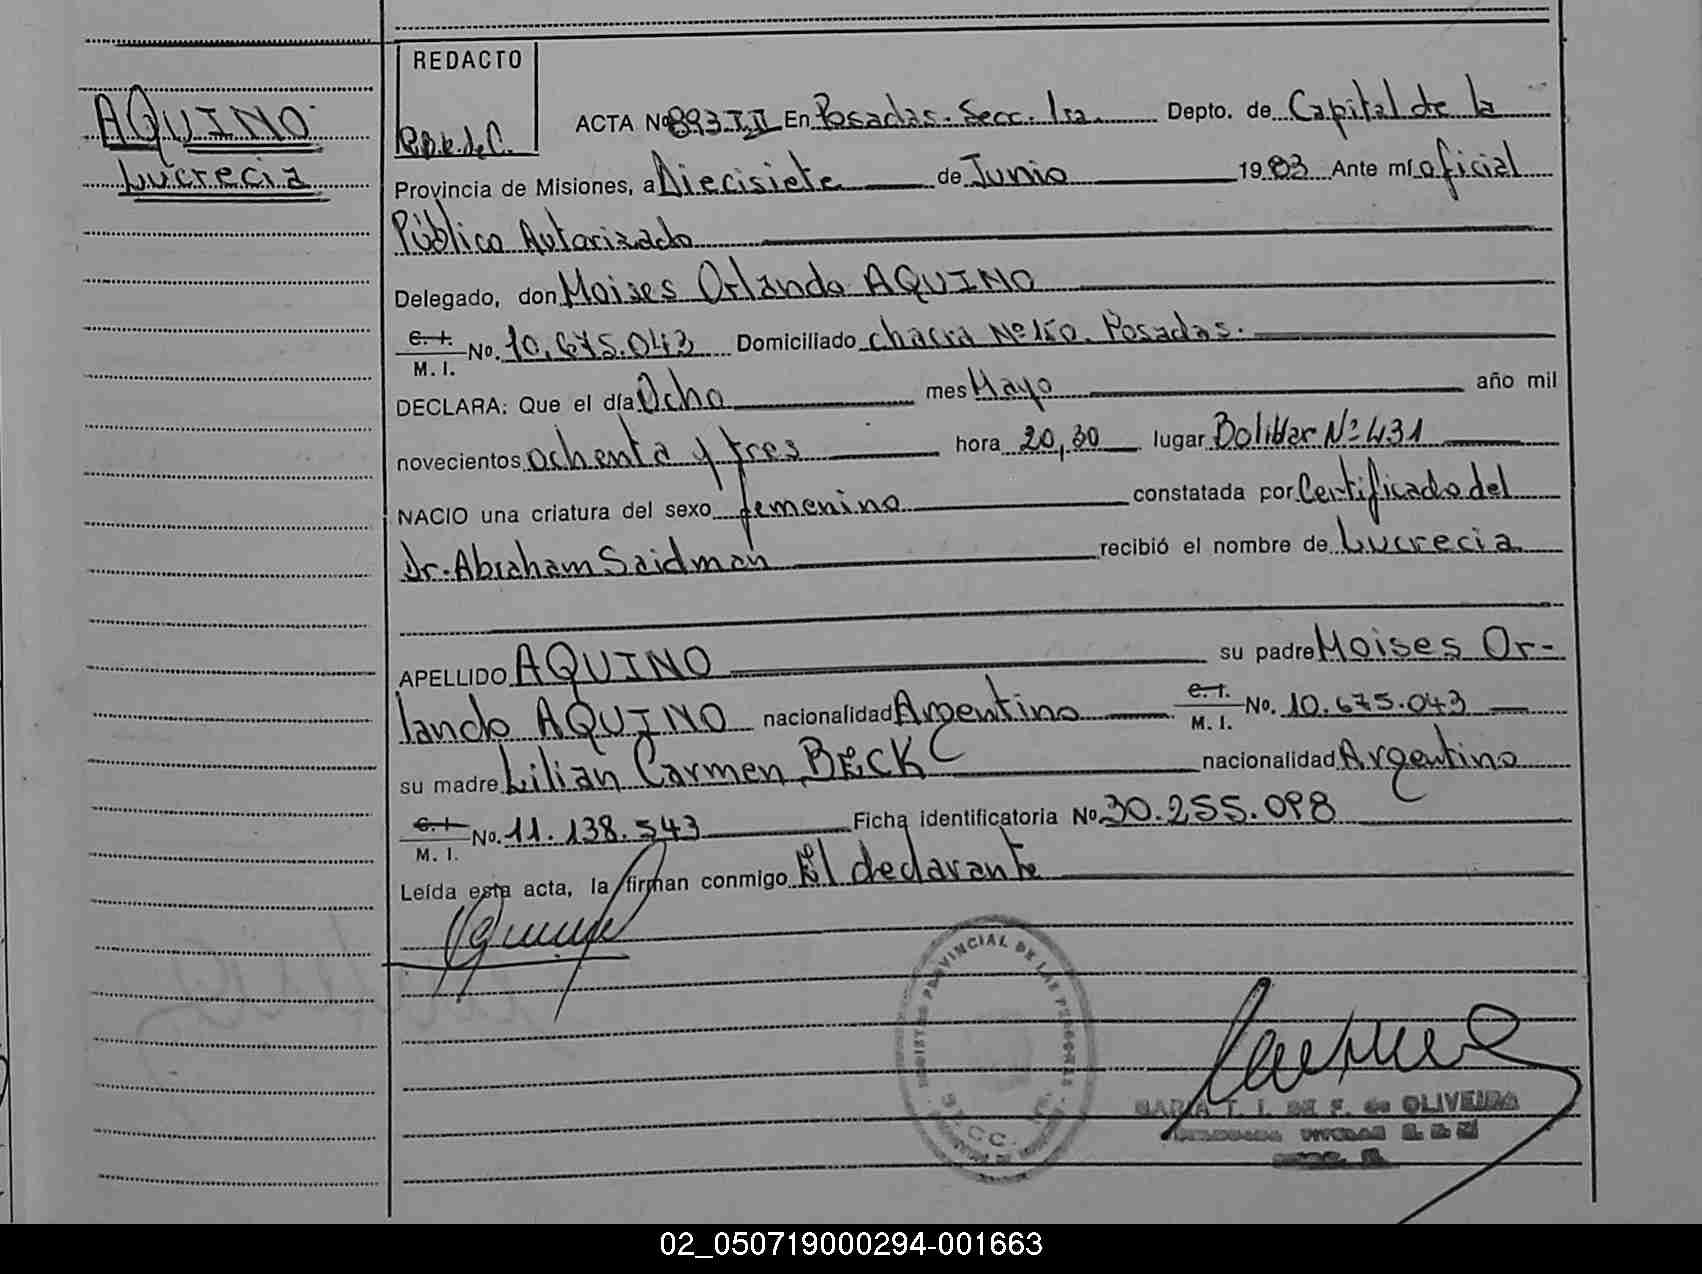 REDACTO
AQUINO
Lucrecia
ACTA Nº 893 T. II En Posadas. Secc. 1ra. Depto. de Capital de la
Provincia de Misiones, a Diecisiete de Junio 1983 Ante mí oficial
Público Autorizado
Delegado, don Moises Orlando AQUINO
C. I. / M. I. No. 10.675.043 Domiciliado chacra Nº 150. Posadas.
DECLARA: Que el día Ocho mes Mayo año mil
novecientos ochenta y tres hora 20,30 lugar Bolivar Nº 431
NACIO una criatura del sexo femenino constatada por Certificado del
Dr. Abraham Saidman recibió el nombre de Lucrecia
APELLIDO AQUINO su padre Moises Or-
lando AQUINO nacionalidad Argentino C. I. / M. I. No. 10.675.043
su madre Lilian Carmen BECK nacionalidad Argentino
C. I. / M. I. No. 11.138.543 Ficha identificatoria No 30.255.098
Leída esta acta, la firman conmigo El declarante
PROVINCIAL DE LAS PERSONAS
SECC.
MARIA T. I. DE F. de OLIVEIRA
02_050719000294-001663